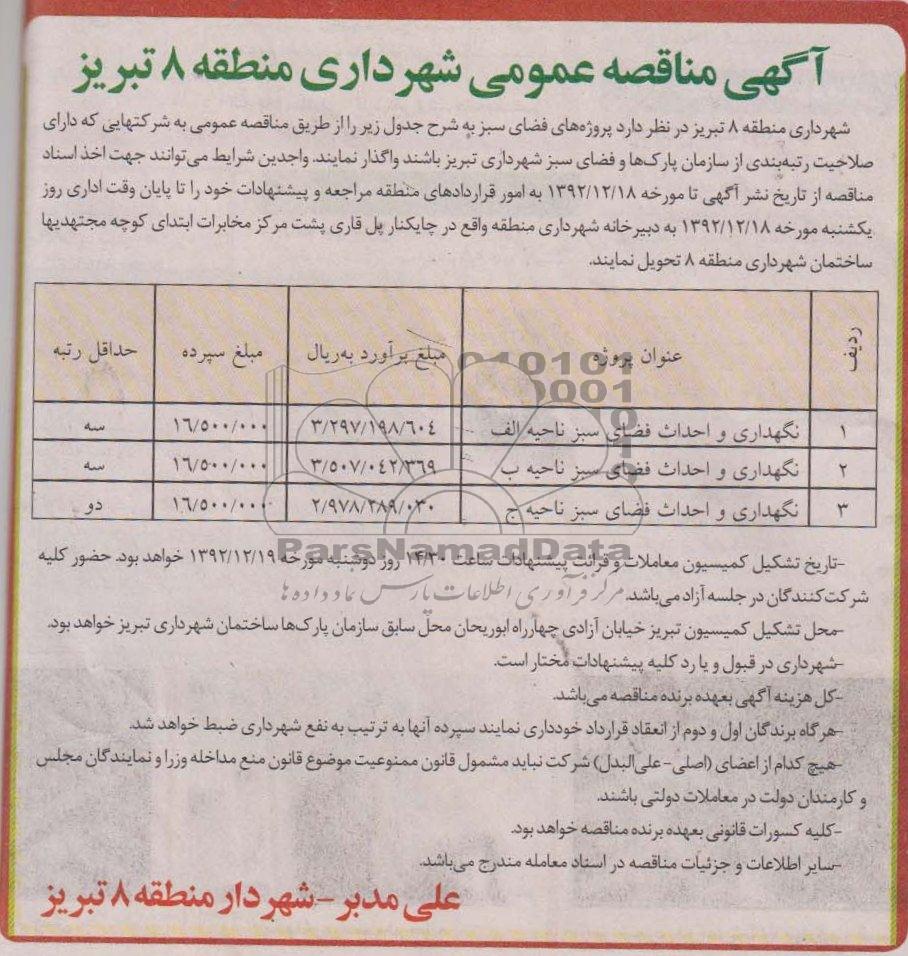 آگهی مناقصه عمومی شهرداری منطقه ۸ تبریز
شهرداری منطقه ۸ تبریز در نظر دارد پروژه‌های فضای سبز به شرح جدول زیر را از طریق مناقصه عمومی به شرکتهایی که دارای
صلاحیت رتبه‌بندی از سازمان پارک‌ها و فضای سبز شهرداری تبریز باشند واگذار نمایند. واجدین شرایط می‌توانند جهت اخذ اسناد
مناقصه از تاریخ نشر آگهی تا مورخه ۱۳۹۲/۱۲/۱۸ به امور قراردادهای منطقه مراجعه و پیشنهادات خود را تا پایان وقت اداری روز
یکشنبه مورخه ۱۳۹۲/۱۲/۱۸ به دبیرخانه شهرداری منطقه واقع در چایکنار پل قاری پشت مرکز مخابرات ابتدای کوچه مجتهدیها
ساختمان شهرداری منطقه ۸ تحویل نمایند.
ردیف عنوان پروژه مبلغ برآورد به‌ریال مبلغ سپرده حداقل رتبه
۱ نگهداری و احداث فضای سبز ناحیه الف ۳/۲۹۷/۱۹۸/٦۰٤ ۱٦/۵۰۰/۰۰۰ سه
۲ نگهداری و احداث فضای سبز ناحیه ب ۳/۵۰۷/۰٤۲/۳٦۹ ۱٦/۵۰۰/۰۰۰ سه
۳ نگهداری و احداث فضای سبز ناحیه ج ۲/۹۷۸/۲۸۹/۰۳۰ ۱٦/۵۰۰/۰۰۰ دو
010101
0001
ParsNamadData
مرکز فرآوری اطلاعات پارس نماد داده ها
-تاریخ تشکیل کمیسیون معاملات و قرائت پیشنهادات ساعت ۱۴/۳۰ روز دوشنبه مورخه ۱۳۹۲/۱۲/۱۹ خواهد بود. حضور کلیه
شرکت‌کنندگان در جلسه آزاد می‌باشد.
-محل تشکیل کمیسیون تبریز خیابان آزادی چهارراه ابوریحان محل سابق سازمان پارک‌ها ساختمان شهرداری تبریز خواهد بود.
-شهرداری در قبول و یا رد کلیه پیشنهادات مختار است.
-کل هزینه آگهی بعهده برنده مناقصه می‌باشد.
-هرگاه برندگان اول و دوم از انعقاد قرارداد خودداری نمایند سپرده آنها به ترتیب به نفع شهرداری ضبط خواهد شد.
-هیچ کدام از اعضای (اصلی- علی‌البدل) شرکت نباید مشمول قانون ممنوعیت موضوع قانون منع مداخله وزرا و نمایندگان مجلس
و کارمندان دولت در معاملات دولتی باشند.
-کلیه کسورات قانونی بعهده برنده مناقصه خواهد بود.
-سایر اطلاعات و جزئیات مناقصه در اسناد معامله مندرج می‌باشد.
علی مدبر - شهردار منطقه ۸ تبریز